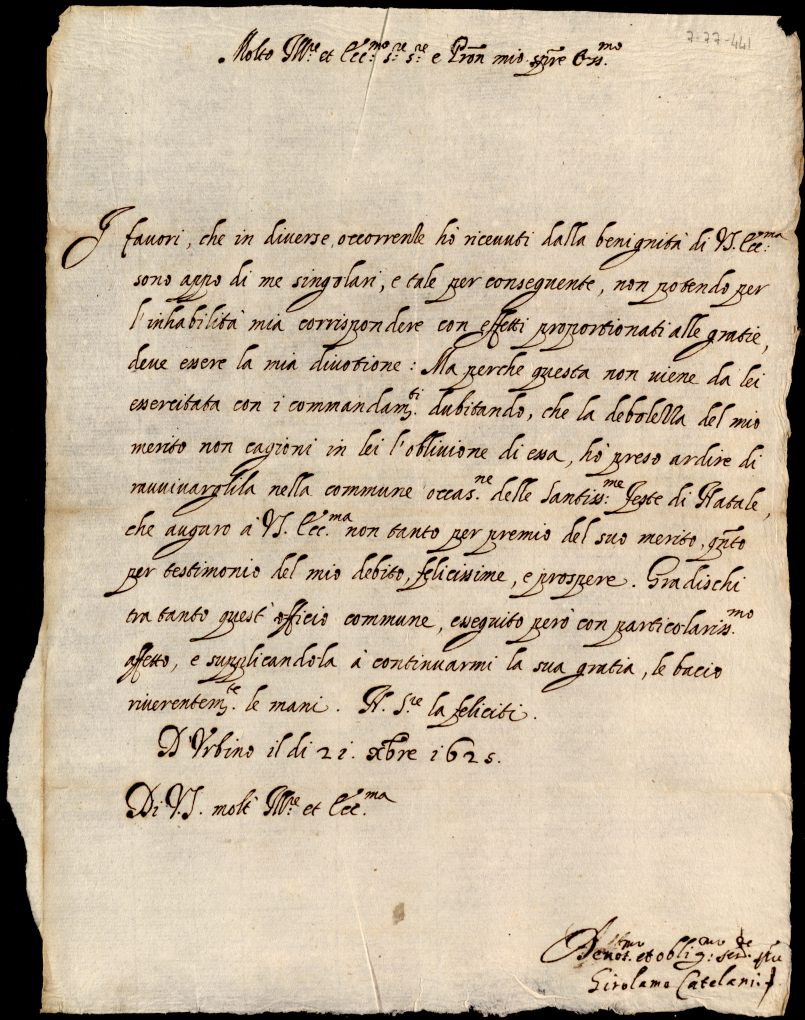 7-77-441
Molto Ill.re et Ecc.mo S.re S.re e Pron mio sig.re Oss.mo
I favori, che in diverse occorrenze hò ricevuti dalla benignità di V.S. Ecc.ma
sono appo di me singolari, e tale per conseguente, non potendo per
l'inhabilità mia corrispondere con effetti proportionati alle gratie,
deve essere la mia divotione: Ma perche questa non viene da lei
essercitata con i commandam.ti dubitando, che la debolezza del mio
merito non cagioni in lei l'oblivione di essa, hò preso ardire di
ravvivarglila nella commune occas.ne delle Santiss.me feste di Natale,
che auguro à V.S. Ecc.ma non tanto per premio del suo merito, qnto
per testimonio del mio debito, felicissime, e prospere. Gradischi
tra tanto quest'officio commune, eseguito però con particolariss.mo
affetto, e supplicandola à continuarmi la sua gratia, le bacio
riverentem.te le mani. N. S.re la feliciti.
D'Urbino il di 21. Xbre 1625.
Di V.S. molt'Ill.re et Ecc.ma
Devot.mo et oblig.mo ser.re
Girolamo Catelani